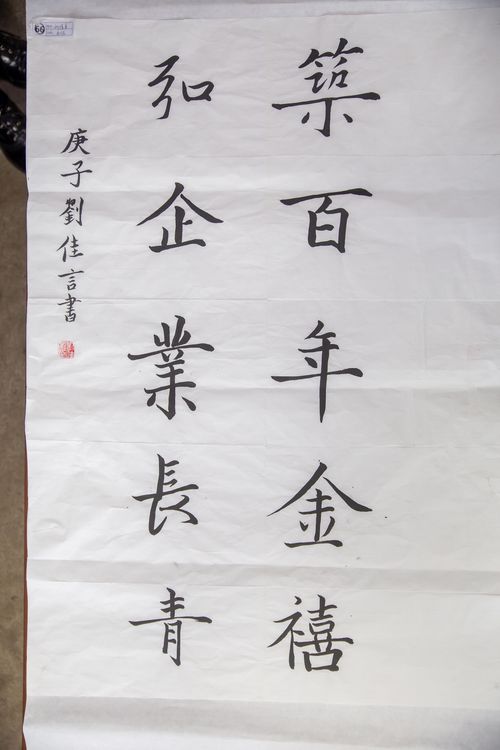 築百年金禧
弘企業長青
庚子劉佳言書
66